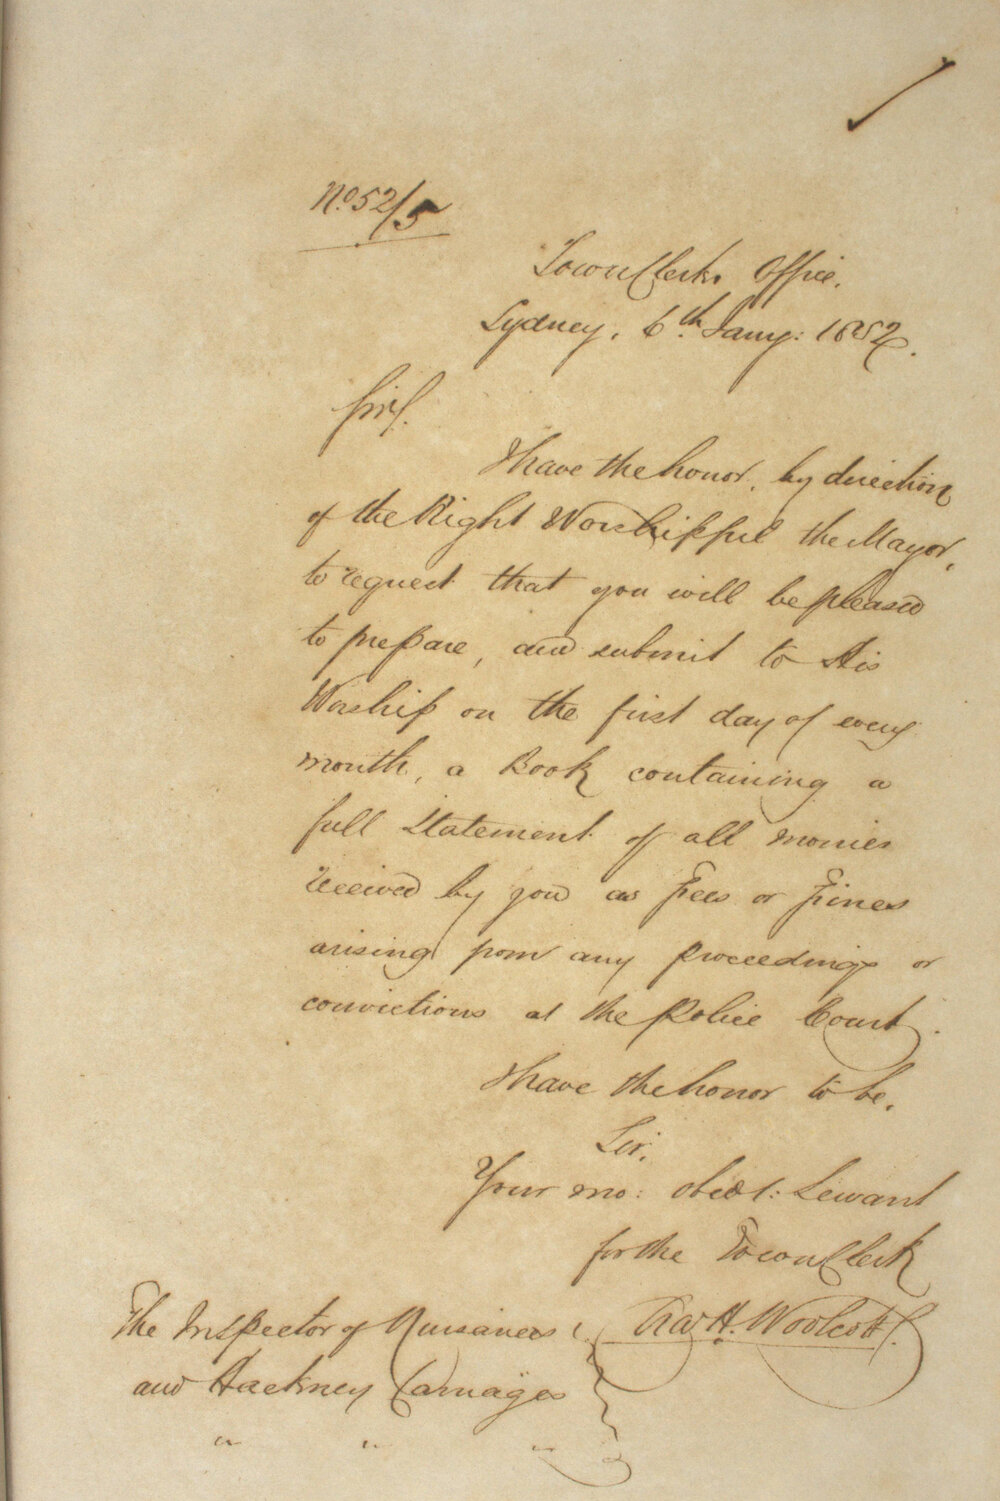 No. 52/5
Town Clerks Office.
Sydney, 6th. Jany: 1852.
Sir,
I have the honor, by direction
of the Right Worshipful the Mayor,
to request that you will be pleased
to prepare, and submit to His
Worship on the first day of every
month, a Book containing a
full Statement of all monies
received by you as Fees or Fines
arising from any proceedings or
convictions at the Police Court.
I have the honor to be,
Sir,
Your mo: obedt: Servant
for the Town Clerk
Chas H. Woolcott.
The Inspector of Nuisances
and Hackney Carriages
" " "